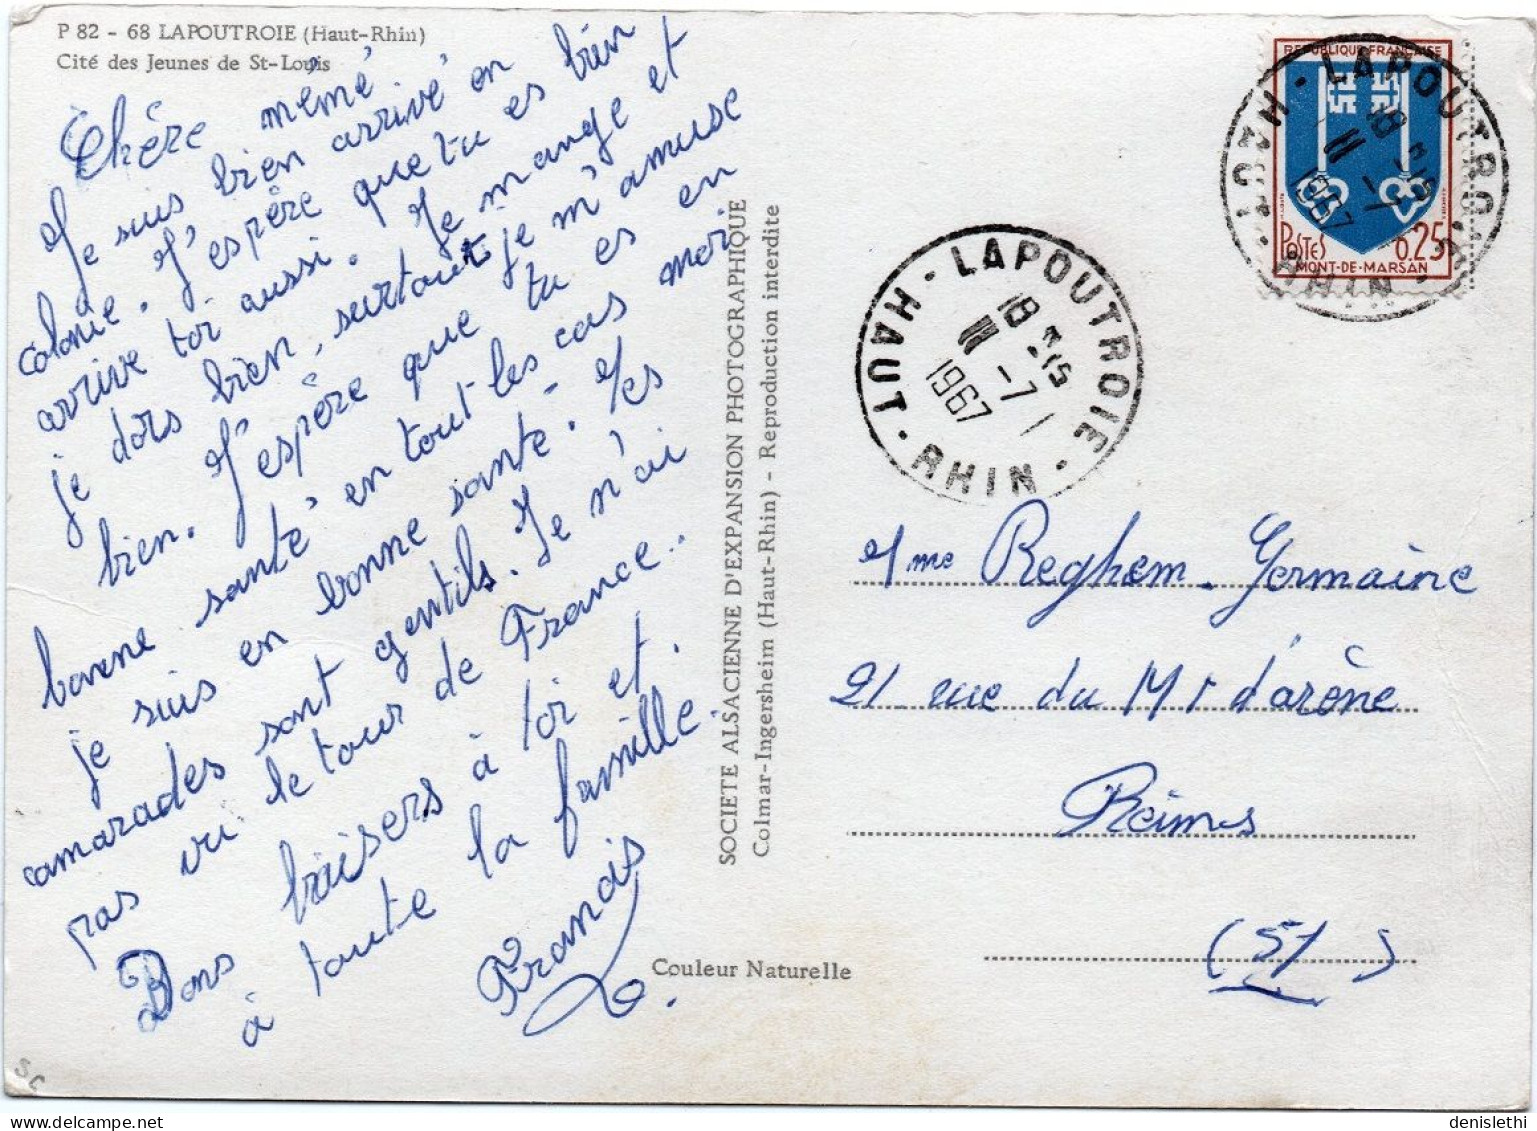 P 82 - 68 LAPOUTROIE (Haut-Rhin)
Cité des Jeunes de St-Louis
Chère mémé
Je suis bien arrivé en
colonie. J'espère que tu es bien
arrivé toi aussi. Je mange et
je dors bien, surtout je m'amuse
bien. J'espère que tu es en
bonne santé en tout les cas moi
je suis en bonne santé. Mes
camarades sont gentils. Je n'ai
pas vu le tour de France..
Bons baisers à toi et.
à toute la famille.
Francis
SOCIETE ALSACIENNE D'EXPANSION PHOTOGRAPHIQUE
Colmar-Ingersheim (Haut-Rhin) - Reproduction interdite
Couleur Naturelle
REPUBLIQUE FRANÇAISE
POSTES 0.25
MONT-DE-MARSAN
LAPOUTROIE
18 H 15
11 - 7
1967
HAUT - RHIN
LAPOUTROIE
18 H 15
11 - 7
1967
HAUT - RHIN
Mme Reghem. Germaine
21 rue du Mt d'arène
Reims
(51)
SC
delcampe.net
denislethi